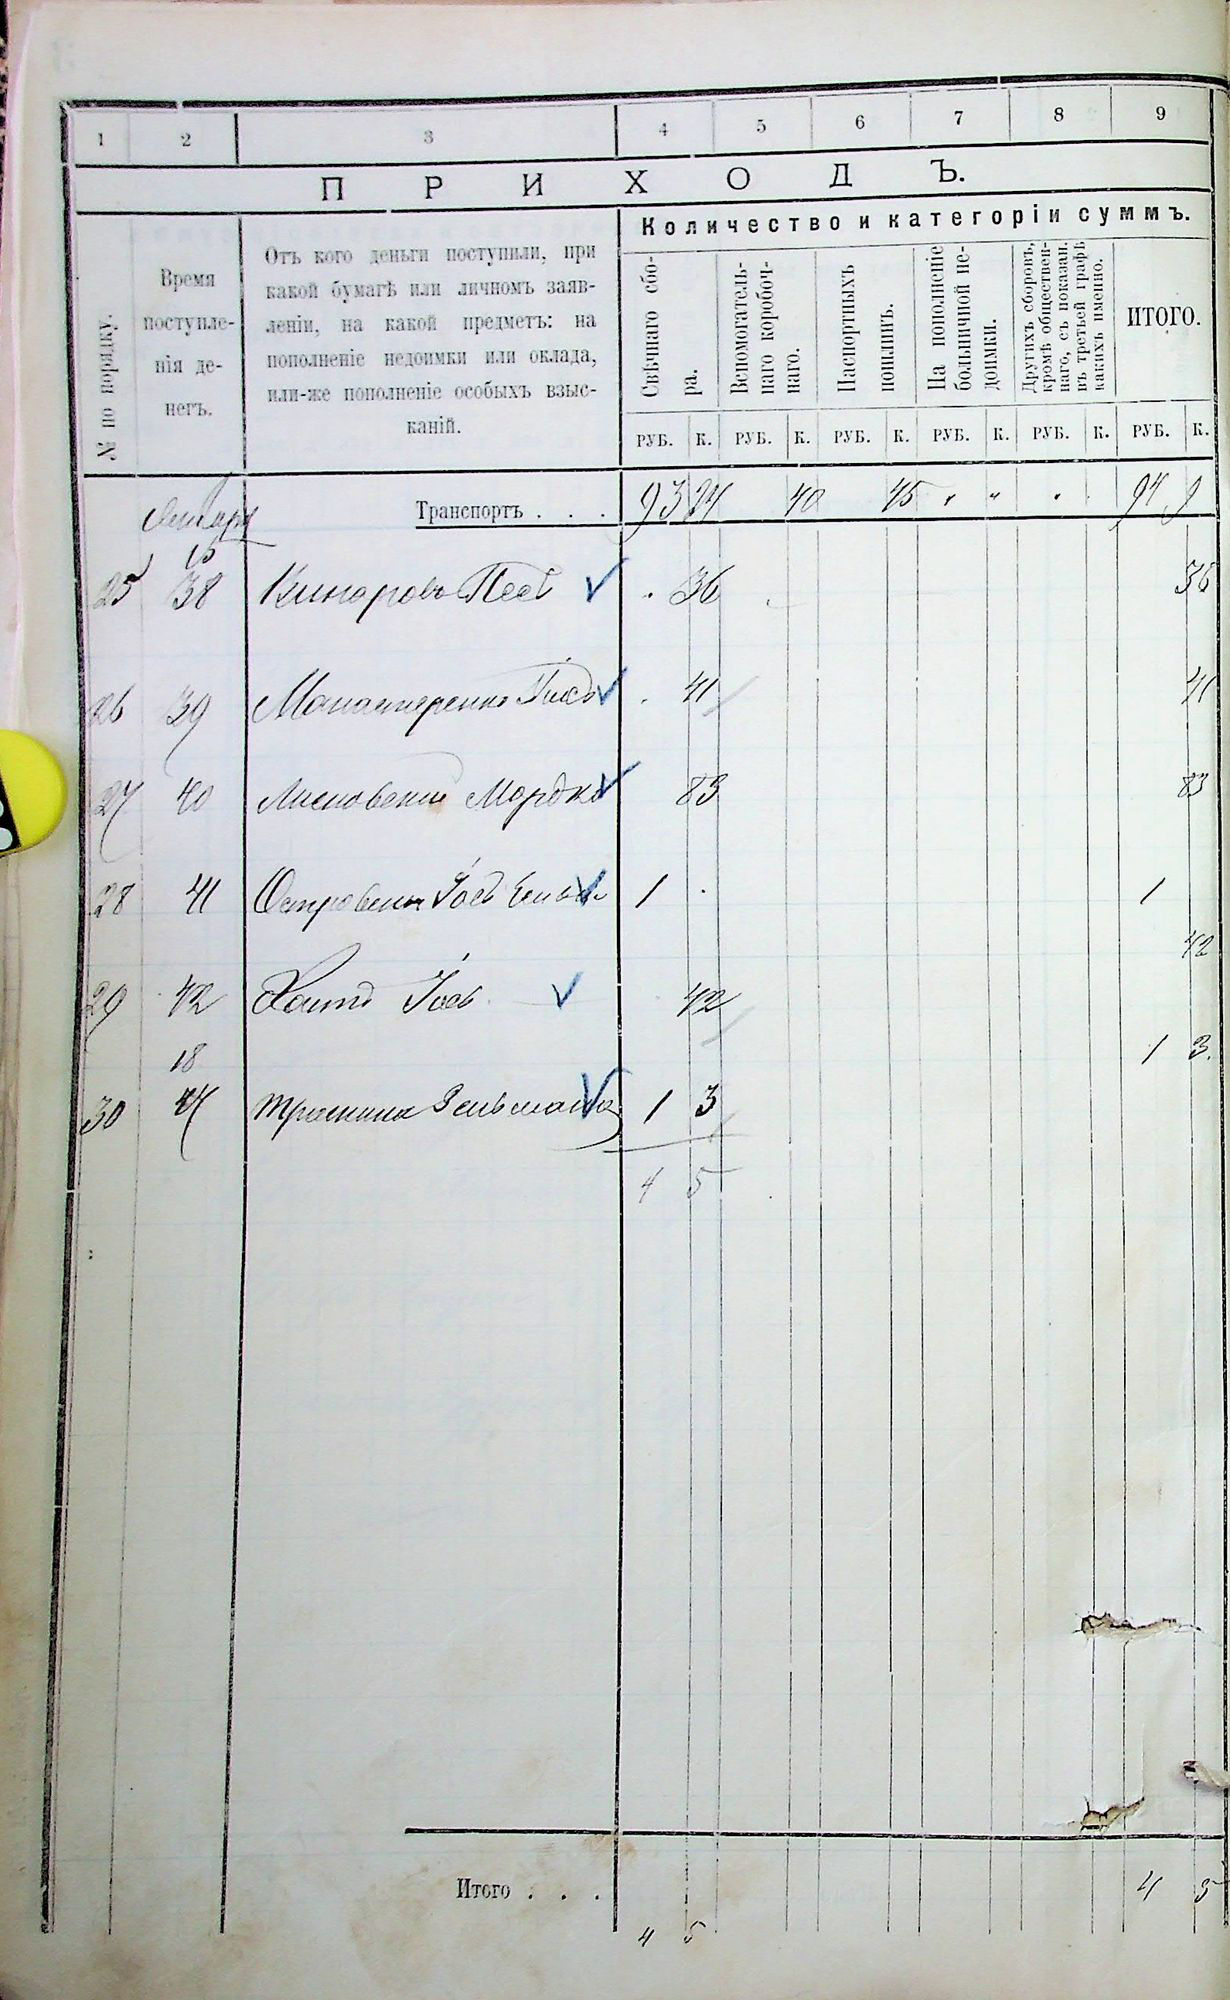 1 2 3 4 5 6 7 8 9
ПРИХОДЪ.
№ по порядку.
Время
поступле-
нія де-
негъ.
Отъ кого деньги поступили, при
какой бумагѣ или личномъ заяв-
леніи, на какой предметъ: на
пополненіе недоимки или оклада,
или-же пополненіе особыхъ взыс-
каній.
Количество и категоріи суммъ.
Свѣчнаго сбо-
ра.
Вспомогатель-
наго коробоч-
наго.
Паспортныхъ
пошлинъ.
На пополненіе
больничной не-
доимки.
Другихъ сборовъ,
кромѣ обществен-
наго, съ показан.
въ третьей графѣ
какихъ именно.
ИТОГО.
РУБ. К. РУБ. К. РУБ. К. РУБ. К. РУБ. К. РУБ. К.
Транспортъ . . . 93 24 40 45 " " " 94 9
15
25 38 36 36
26 39 41 41
27 40 Мордко 83 83
28 41 1 . 1
42
29 42 42
18
1 3.
30 Зельмана 1 3
4 5
Итого . . . 4 5
4 5